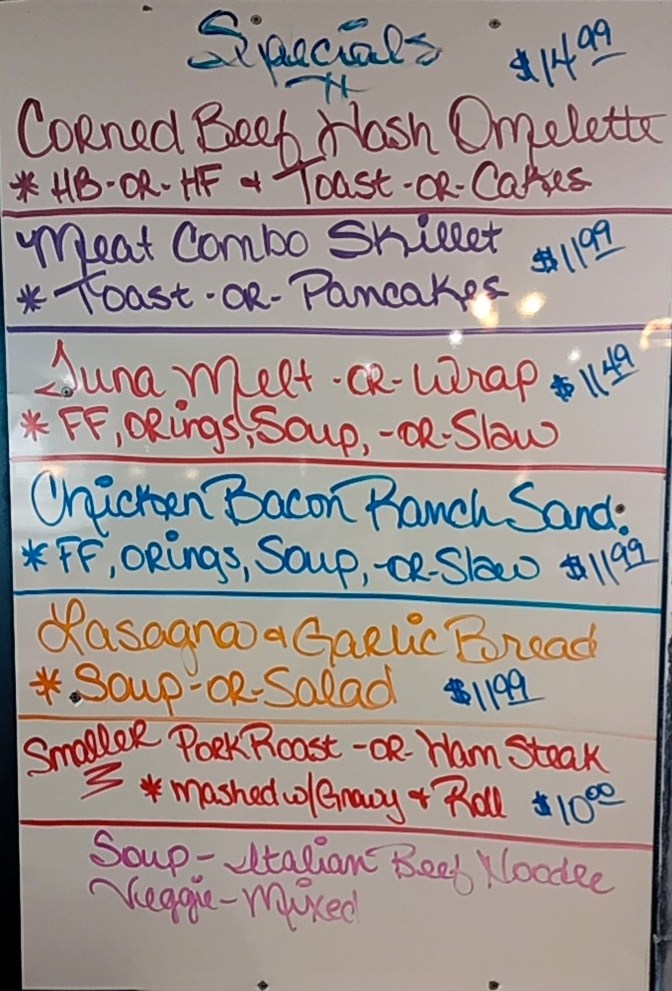 Specials $14.99
Corned Beef Hash Omelette
* HB-OR-HF & Toast-OR-Cakes
Meat Combo Skillet $11.99
* Toast-OR-Pancakes
Tuna Melt-OR-Wrap $11.49
* FF, ORings, Soup,-OR-Slaw
Chicken Bacon Ranch Sand.
* FF, ORings, Soup,-OR-Slaw $11.99
Lasagna & Garlic Bread
* Soup-OR-Salad $11.99
Smaller Pork Roast-OR-Ham Steak
* Mashed w/Gravy & Roll $10.00
Soup-Italian Beef Noodle
Veggie-Mixed